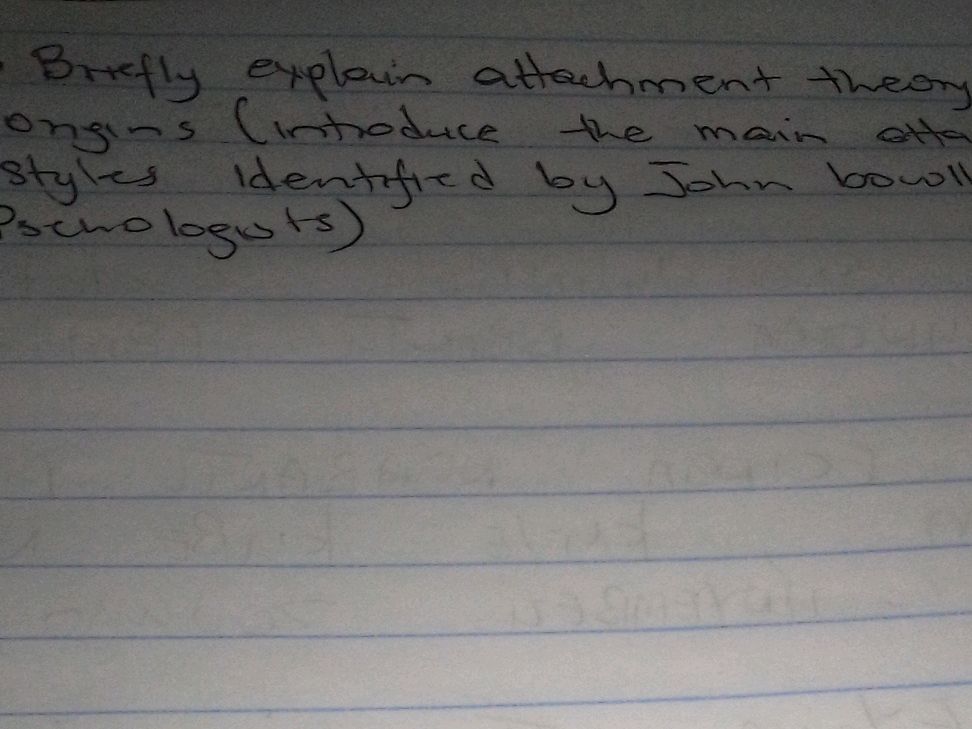 Briefly explain attachment theory
origins (introduce the main atta
styles identified by John bowll
Pschologists)